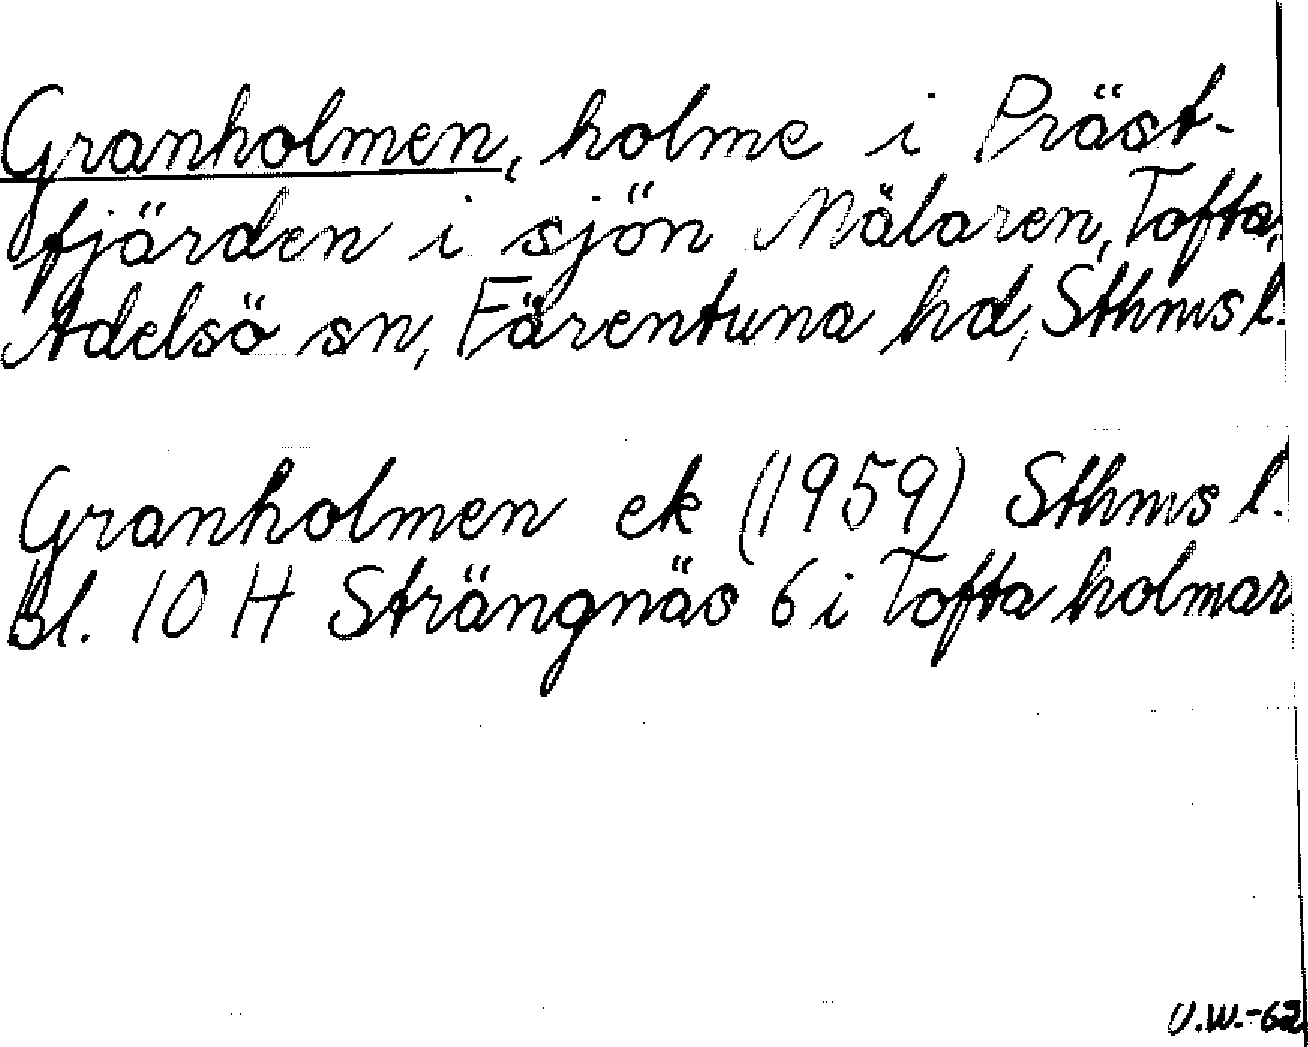 Granholmen, holme i Präst-
fjärden i sjön Mälaren, Tofta,
Adelsö sn, Färentuna hd, Sthms l.
Granholmen ek (1959) Sthms l.
Bl. 10 H Strängnäs 6 i Tofta holmar
U.W.-62